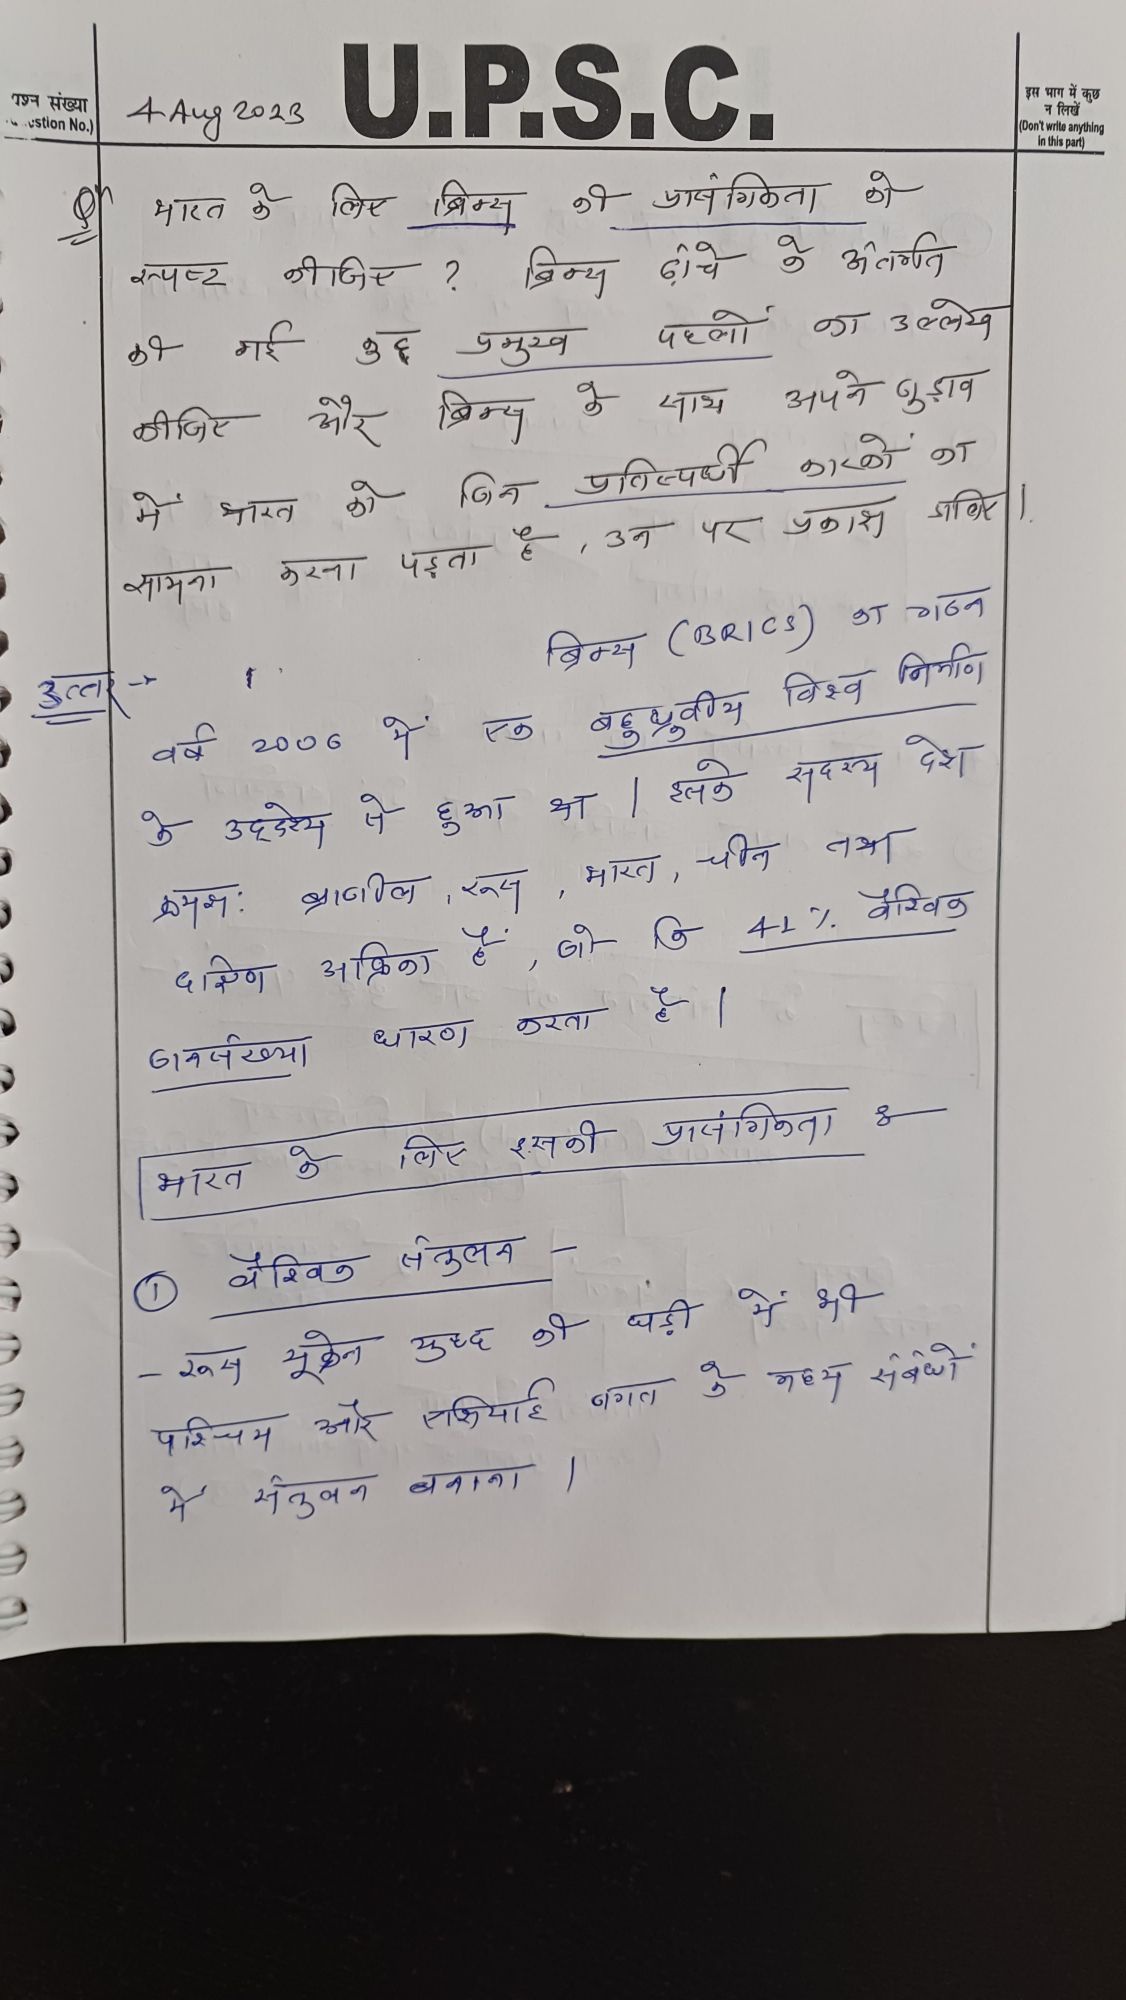 प्रश्न संख्या
(Question No.)
4 Aug 2023
U.P.S.C.
इस भाग में कुछ
न लिखें
(Don't write anything
in this part)
Qn भारत के लिए ब्रिक्स की प्रासंगिकता को
स्पष्ट कीजिए ? ब्रिक्स ढ़ांचे के अंतर्गत
की गई कुछ प्रमुख पहलों का उल्लेख
कीजिए और ब्रिक्स के साथ अपने जुड़ाव
में भारत को जिन प्रतिस्पर्धी कारकों का
सामना करना पड़ता है , उन पर प्रकाश डालिए |
उत्तर → ब्रिक्स (BRICS) का गठन
वर्ष 2006 में एक बहुध्रुवीय विश्व निर्माण
के उद्देश्य से हुआ था | इसके सदस्य देश
क्रमशः ब्राजील , रूस , भारत , चीन तथा
दक्षिण अफ्रिका हैं , जो कि 41 % वैश्विक
जनसंख्या धारण करता है |
भारत के लिए इसकी प्रासंगिकता :-
① वैश्विक संतुलन -
- रूस यूक्रेन युध्द की घड़ी में भी
पश्चिम और एशियाई जगत के मध्य संबंधों
में संतुलन बनाना |